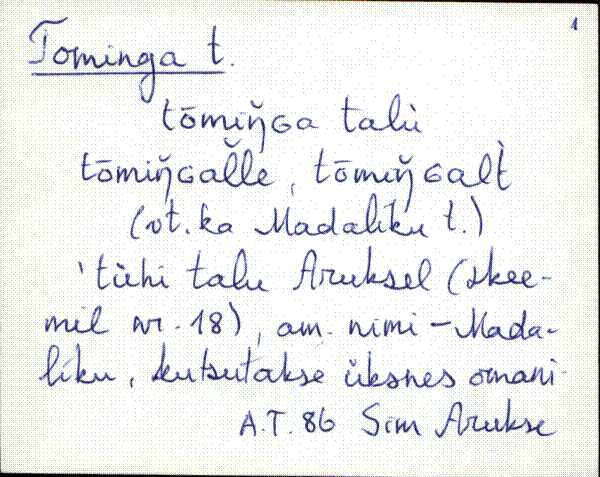 1
Tominga t.
tōmiŋ̆Ga talù
tōmiŋ̆Gal̆le, tōmiŋ̆Galt̀
(vt. ka Madaliku t.)
'tühi talu Aruksel (skee-
mil nr. 18), am. nimi - Mada-
liku, kutsutakse üksnes omani-
A.T. 86 Sim Arukse